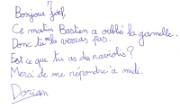 Bonjour Joël,
Ce matin Bastien a oublié la gamelle.
Donc tu la verras pas.
Est ce que tu as des raviolis?
Merci de me répondre a midi.
Dorian